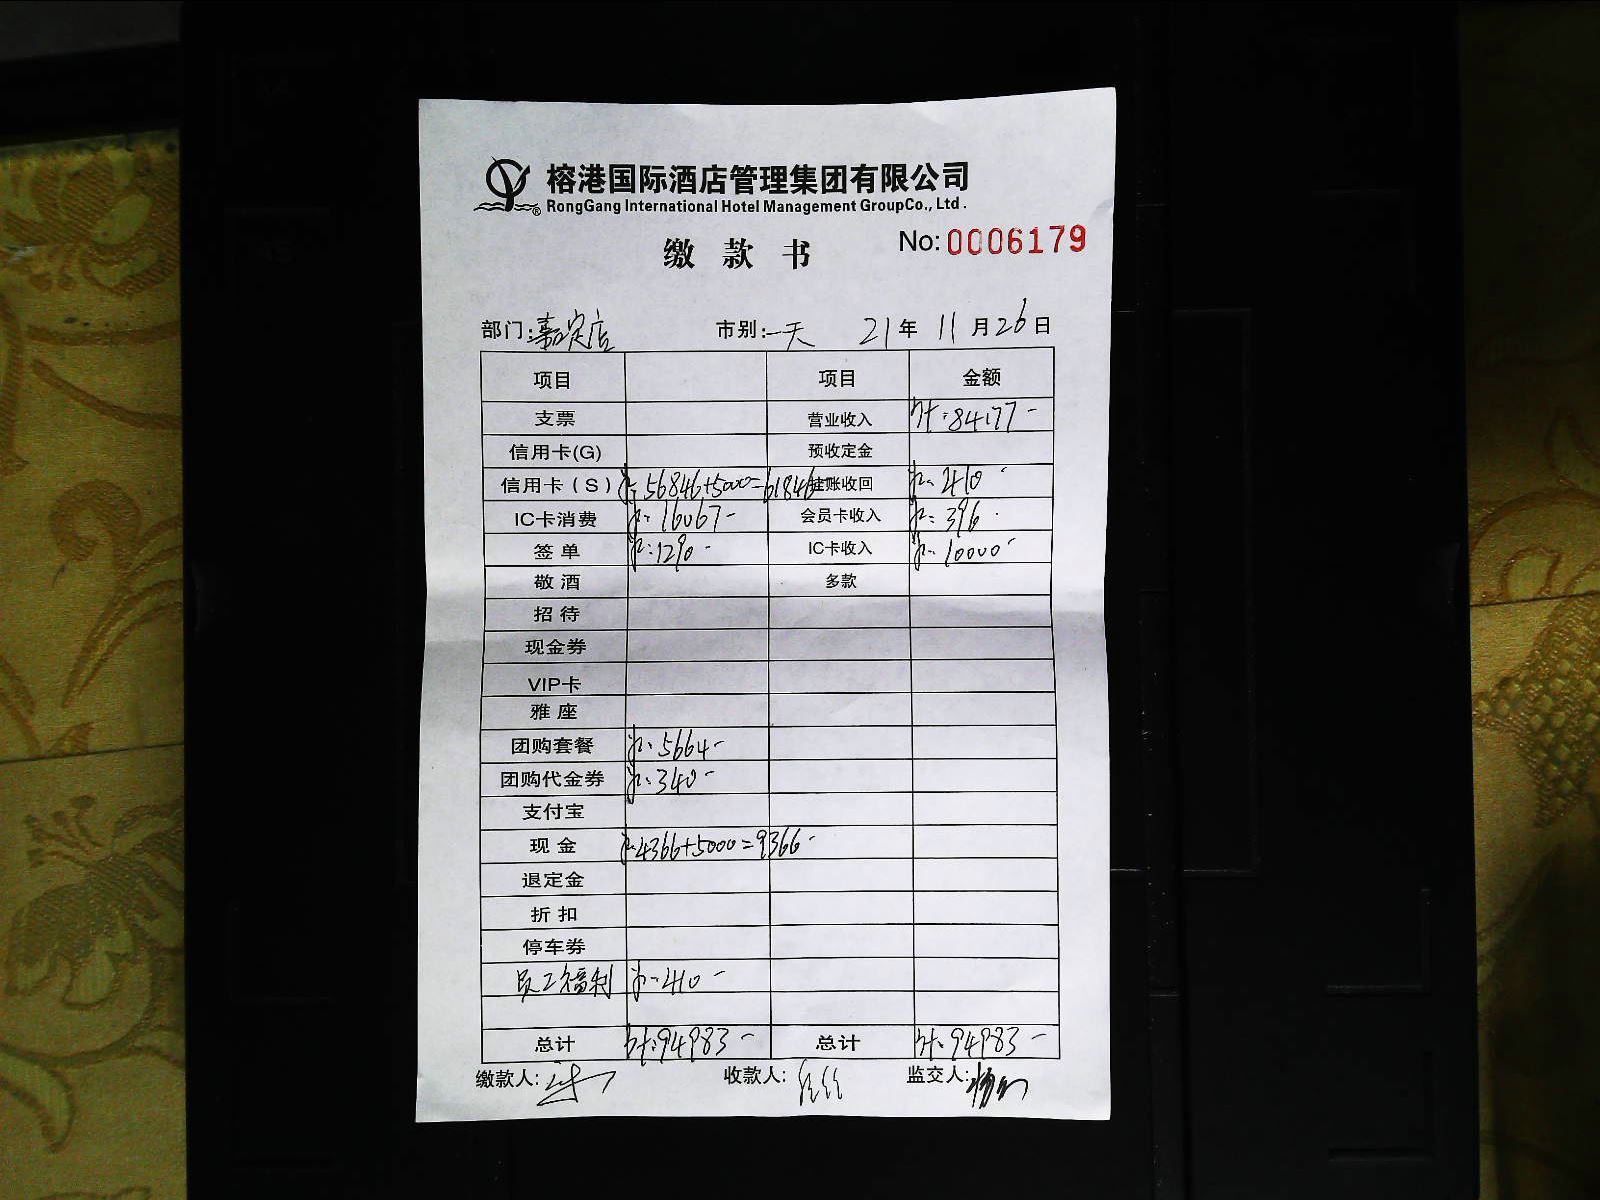 榕港国际酒店管理集团有限公司
RongGang International Hotel Management GroupCo., Ltd.
缴款书 No:0006179
部门:嘉定店 市别:一天 21年11月26日
项目 项目 金额
支票 营业收入 计:84177-
信用卡(G) 预收定金
信用卡(S) 计:56846+5000=61846 挂账收回 计:410-
IC卡消费 计:16067- 会员卡收入 计:396-
签单 计:1290- IC卡收入 计:10000-
敬酒 多款
招待
现金券
VIP卡
雅座
团购套餐 计:5664-
团购代金券 计:340-
支付宝
现金 计:4366+5000=9366-
退定金
折扣
停车券
员工福利 计:410-
总计 计:94983- 总计 计:94983-
缴款人: 收款人: 监交人: